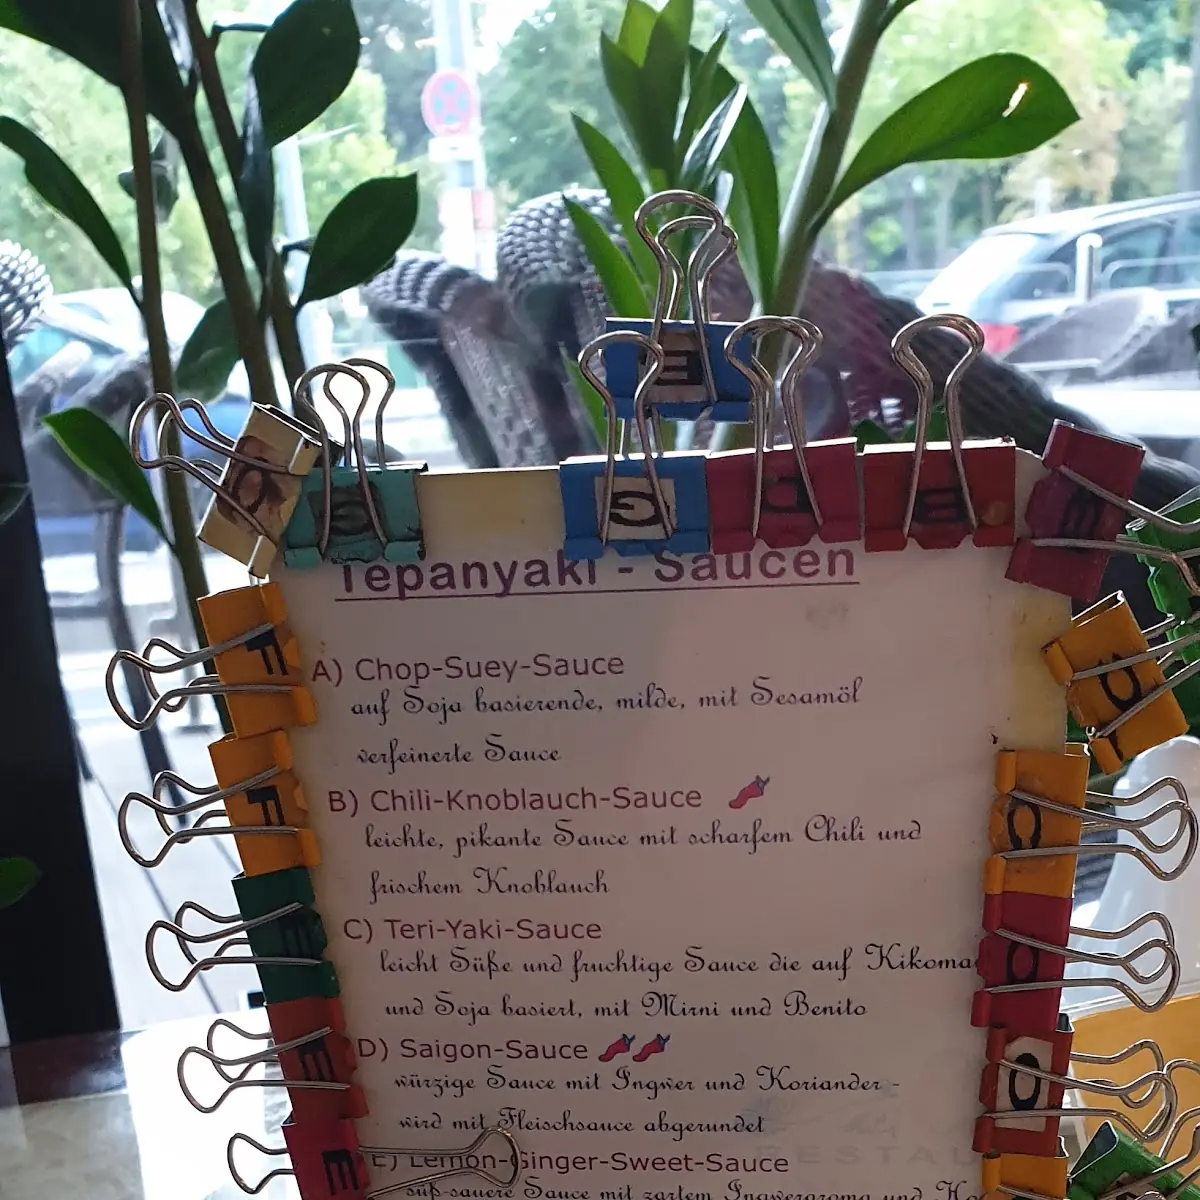 E
G
G
D
B
E
Tepanyaki - Saucen
F
A) Chop-Suey-Sauce
auf Soja basierende, milde, mit Sesamöl
verfeinerte Sauce
F
B) Chili-Knoblauch-Sauce
leichte, pikante Sauce mit scharfem Chili und
frischem Knoblauch
C
E
C) Teri-Yaki-Sauce
leicht Süße und fruchtige Sauce die auf
und Soja basiert, mit Mirni und Benito
E
D) Saigon-Sauce
würzige Sauce mit Ingwer und Koriander -
wird mit Fleischsauce abgerundet
E
E) Lemon-Ginger-Sweet-Sauce
süß-sauere Sauce mit zartem Ingweraroma und